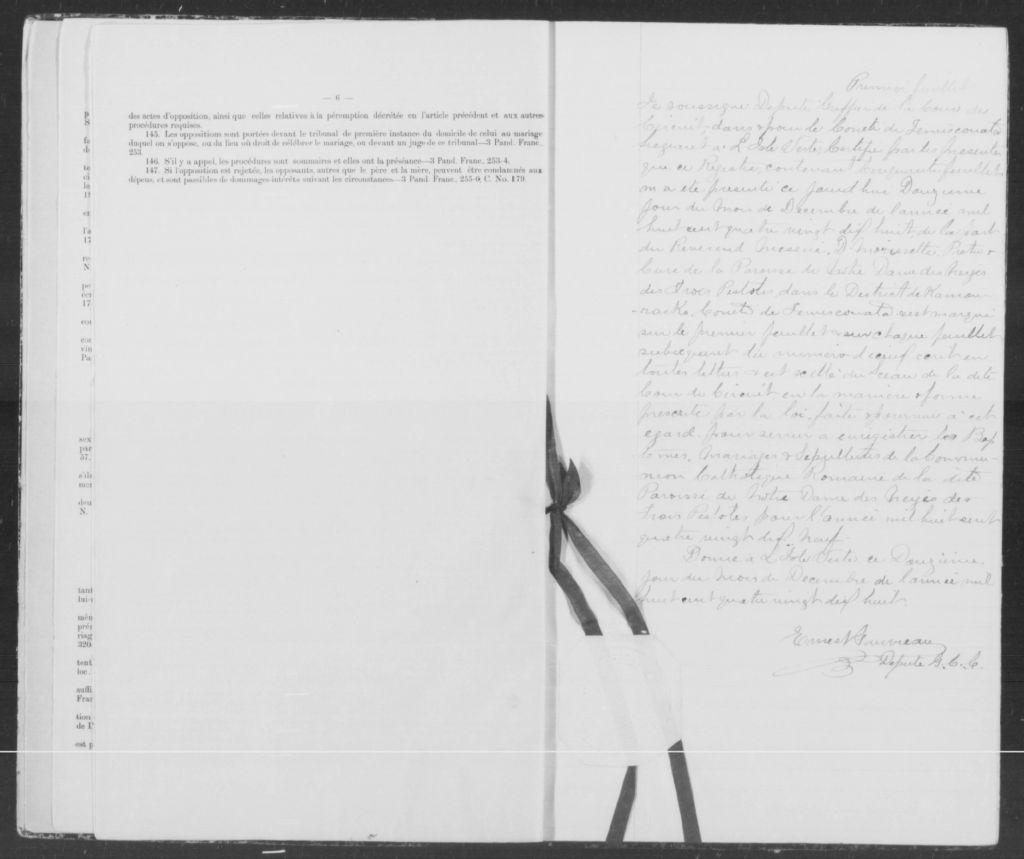 — 6 —
des actes d'opposition, ainsi que celles relatives à la péremption décrétée en l'article précédent et aux autres
procédures requises.
145. Les oppositions sont portées devant le tribunal de première instance du domicile de celui au mariage
duquel on s'oppose, ou du lieu où droit de célébrer le mariage, ou devant un juge de ce tribunal—3 Pand. Franc.
253.
146. S'il y a appel, les procédures sont sommaires et elles ont la préséance—3 Pand. Franc. 253-4.
147. Si l'opposition est rejetée, les opposants, autres que le père et la mère, peuvent être condamnés aux
dépens, et sont passibles de dommages-intérêts suivant les circonstances—3 Pand. Franc., 255-6, C. No. 179.
Premier feuillet
Je soussigné Député Greffier de la Cour de
Circuit dans & pour le Comté de Temiscouata
siégeant à L'Isle Verte, Certifie par les presentes
que ce Registre, contenant Cinquante feuillets
m'a été presenté ce jourd'hui Douzieme
jour du mois de Decembre de l'année mil
huit cent quatre vingt dix huit de la part
du Reverend Messire D. Morissette Ptre &
Curé de la Paroisse de Notre Dame des Neiges
des Trois Pistoles, dans le District de Kamou-
-raska, Comté de Temiscouata & est marqué
sur le premier feuillet & sur chaque feuillet
subsequent du numero d'iceux ecrit en
toutes lettres & est scellé du sceau de la dite
Cour de Circuit en la maniere & forme
prescrite par la loi, faite & pourvue à cet
egard, pour servir a enregistrer les Bap
têmes, Mariages & Sepultures de la Commu-
nion Catholique Romaine de la dite
Paroisse de Notre Dame des Neiges des
Trois Pistoles pour l'année mil huit cent
quatre vingt dix Neuf.
Donné à L'Isle Verte ce Douzieme
jour du Mois de Decembre de l'année mil
huit cent quatre vingt dix huit
Ernest Gauvreau
Député G. C. C.